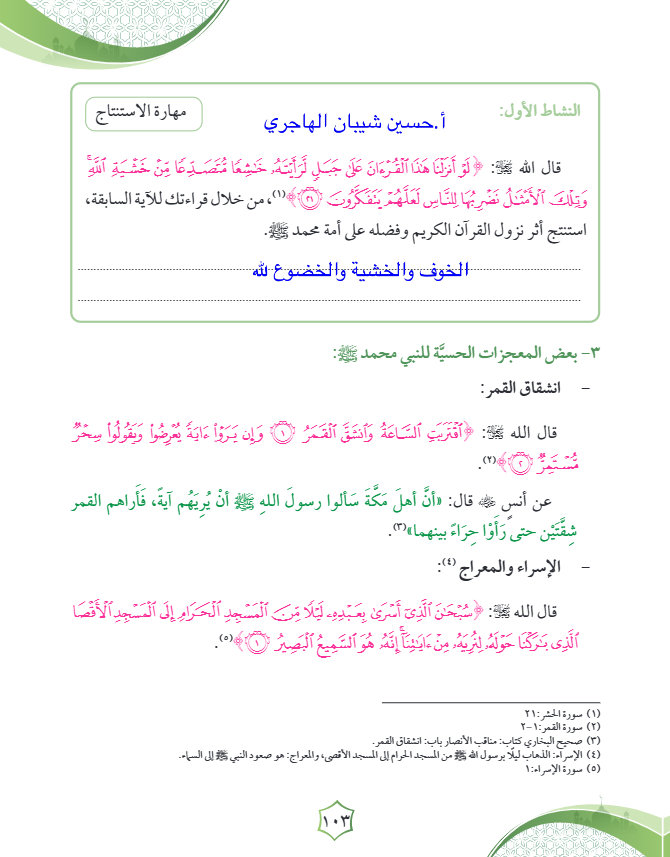 النشاط الأول:
مهارة الاستنتاج
أ.حسين شيبان الهاجري
قال الله ﷻ: ﴿لَوْ أَنزَلْنَا هَٰذَا ٱلْقُرْءَانَ عَلَىٰ جَبَلٍ لَّرَأَيْتَهُۥ خَٰشِعًا مُّتَصَدِّعًا مِّنْ خَشْيَةِ ٱللَّهِ ۚ
وَتِلْكَ ٱلْأَمْثَٰلُ نَضْرِبُهَا لِلنَّاسِ لَعَلَّهُمْ يَتَفَكَّرُونَ ٢١﴾(١)، من خلال قراءتك للآية السابقة،
استنتج أثر نزول القرآن الكريم وفضله على أمة محمد ﷺ.
الخوف والخشية والخضوع لله
٣- بعض المعجزات الحسيَّة للنبي محمد ﷺ:
- انشقاق القمر:
قال الله ﷻ: ﴿ٱقْتَرَبَتِ ٱلسَّاعَةُ وَٱنشَقَّ ٱلْقَمَرُ ١ وَإِن يَرَوْا۟ ءَايَةً يُعْرِضُوا۟ وَيَقُولُوا۟ سِحْرٌ
مُّسْتَمِرٌّ ٢﴾(٢).
عن أنسٍ رضي الله عنه قال: «أنَّ أهلَ مَكَّةَ سَألوا رسولَ اللهِ ﷺ أنْ يُرِيَهُم آيةً، فَأَراهم القمر
شِقَّتَيْن حتى رَأَوْا حِرَاءً بينهما»(٣).
- الإسراء والمعراج (٤):
قال الله ﷻ: ﴿سُبْحَٰنَ ٱلَّذِىٓ أَسْرَىٰ بِعَبْدِهِۦ لَيْلًا مِّنَ ٱلْمَسْجِدِ ٱلْحَرَامِ إِلَى ٱلْمَسْجِدِ ٱلْأَقْصَا
ٱلَّذِى بَٰرَكْنَا حَوْلَهُۥ لِنُرِيَهُۥ مِنْ ءَايَٰتِنَآ ۚ إِنَّهُۥ هُوَ ٱلسَّمِيعُ ٱلْبَصِيرُ ١﴾(٥).
(١) سورة الحشر:٢١
(٢) سورة القمر:١-٢
(٣) صحيح البخاري كتاب: مناقب الأنصار باب: انشقاق القمر.
(٤) الإسراء: الذهاب ليلًا برسول الله ﷺ من المسجد الحرام إلى المسجد الأقصى، والمعراج: هو صعود النبي ﷺ إلى السماء.
(٥) سورة الإسراء:١
١٠٣